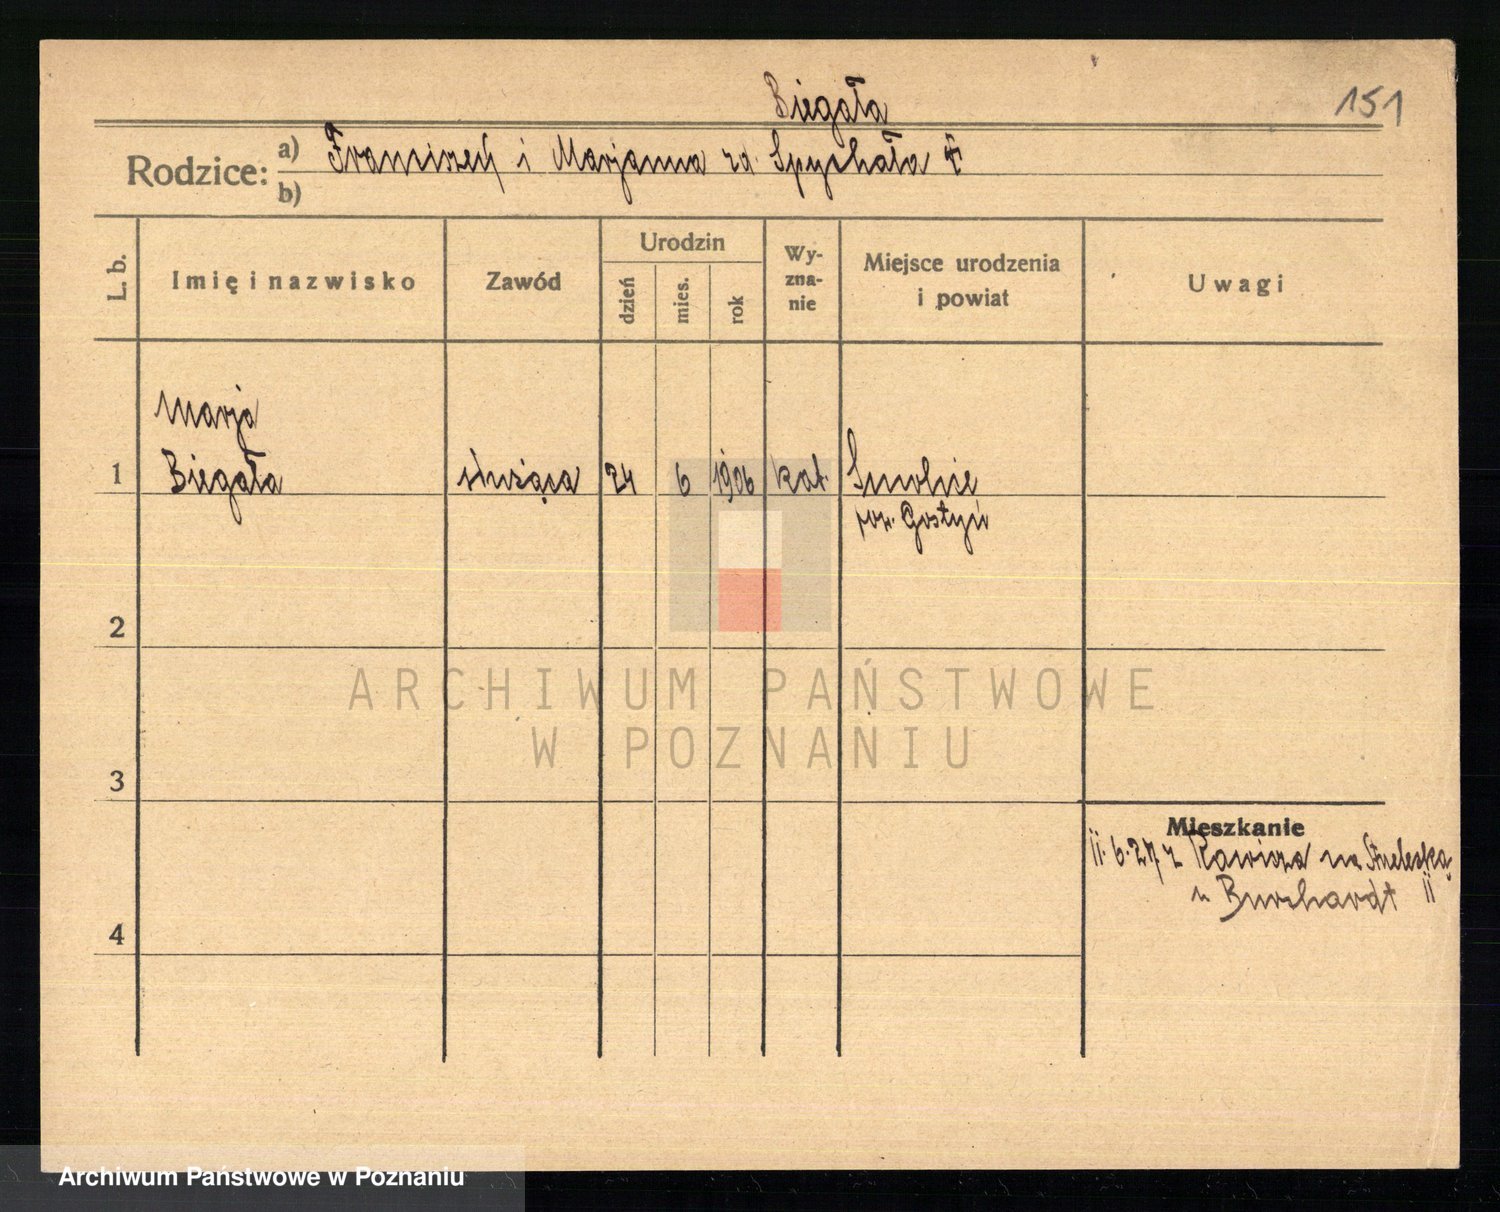 151
Biegała
Rodzice: a) Franciszek i Marjanna zd. Spychała
b)
L. b.
Imię i nazwisko
Zawód
Urodzin
dzień
mies.
rok
Wy-
zna-
nie
Miejsce urodzenia
i powiat
Uwagi
Marja
1 Biegała służąca 24 6 1906 kat. Smolice
pow. Gostyń
2
3
4
Mieszkanie
11.6.27 z Rawicza na
u Burchardt 11
ARCHIWUM PAŃSTWOWE
W POZNANIU
Archiwum Państwowe w Poznaniu